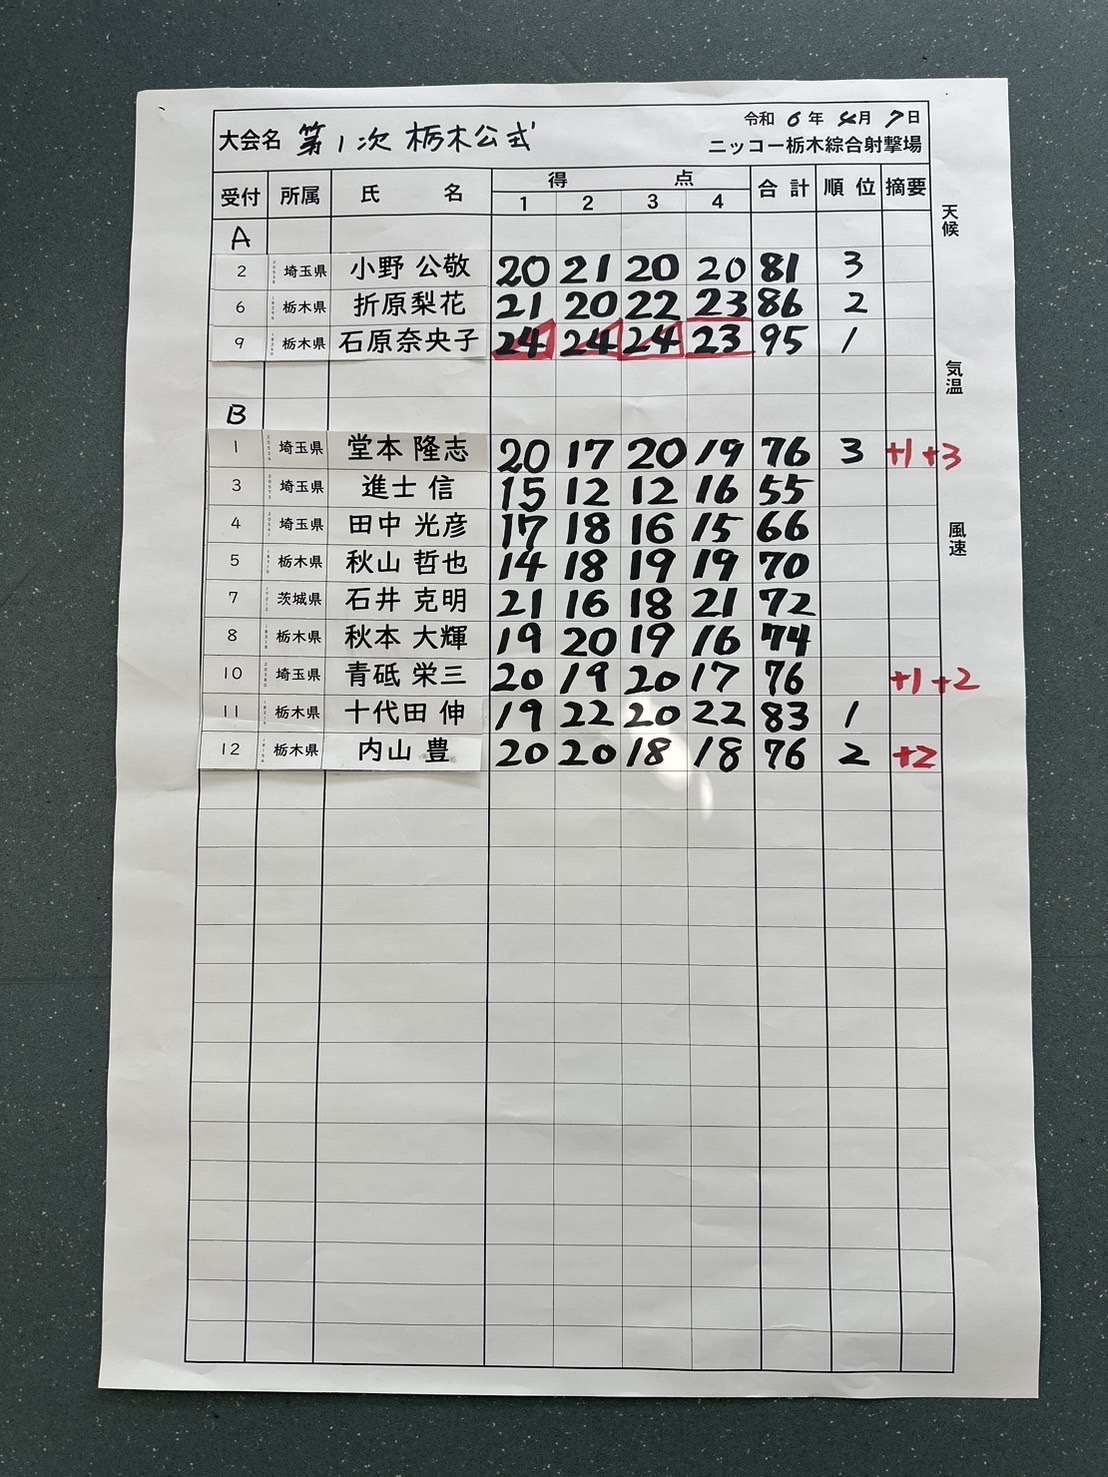 令和 6年 4月 7日
大会名 第1次 栃木公式
ニッコー栃木綜合射撃場
受付 所属 氏 名 得 点 合計 順位 摘要
1 2 3 4
天候
A
2 埼玉県 小野 公敬 20 21 20 20 81 3
6 栃木県 折原梨花 21 20 22 23 86 2
9 栃木県 石原奈央子 24 24 24 23 95 1
気温
B
1 埼玉県 堂本 隆志 20 17 20 19 76 3 +1 +3
3 埼玉県 進士 信 15 12 12 16 55
4 埼玉県 田中 光彦 17 18 16 15 66
風速
5 栃木県 秋山 哲也 14 18 19 19 70
7 茨城県 石井 克明 21 16 18 21 72
8 栃木県 秋本 大輝 19 20 19 16 74
10 埼玉県 青砥 栄三 20 19 20 17 76 +1 +2
11 栃木県 十代田 伸 19 22 20 22 83 1
12 栃木県 内山 豊 20 20 18 18 76 2 +2